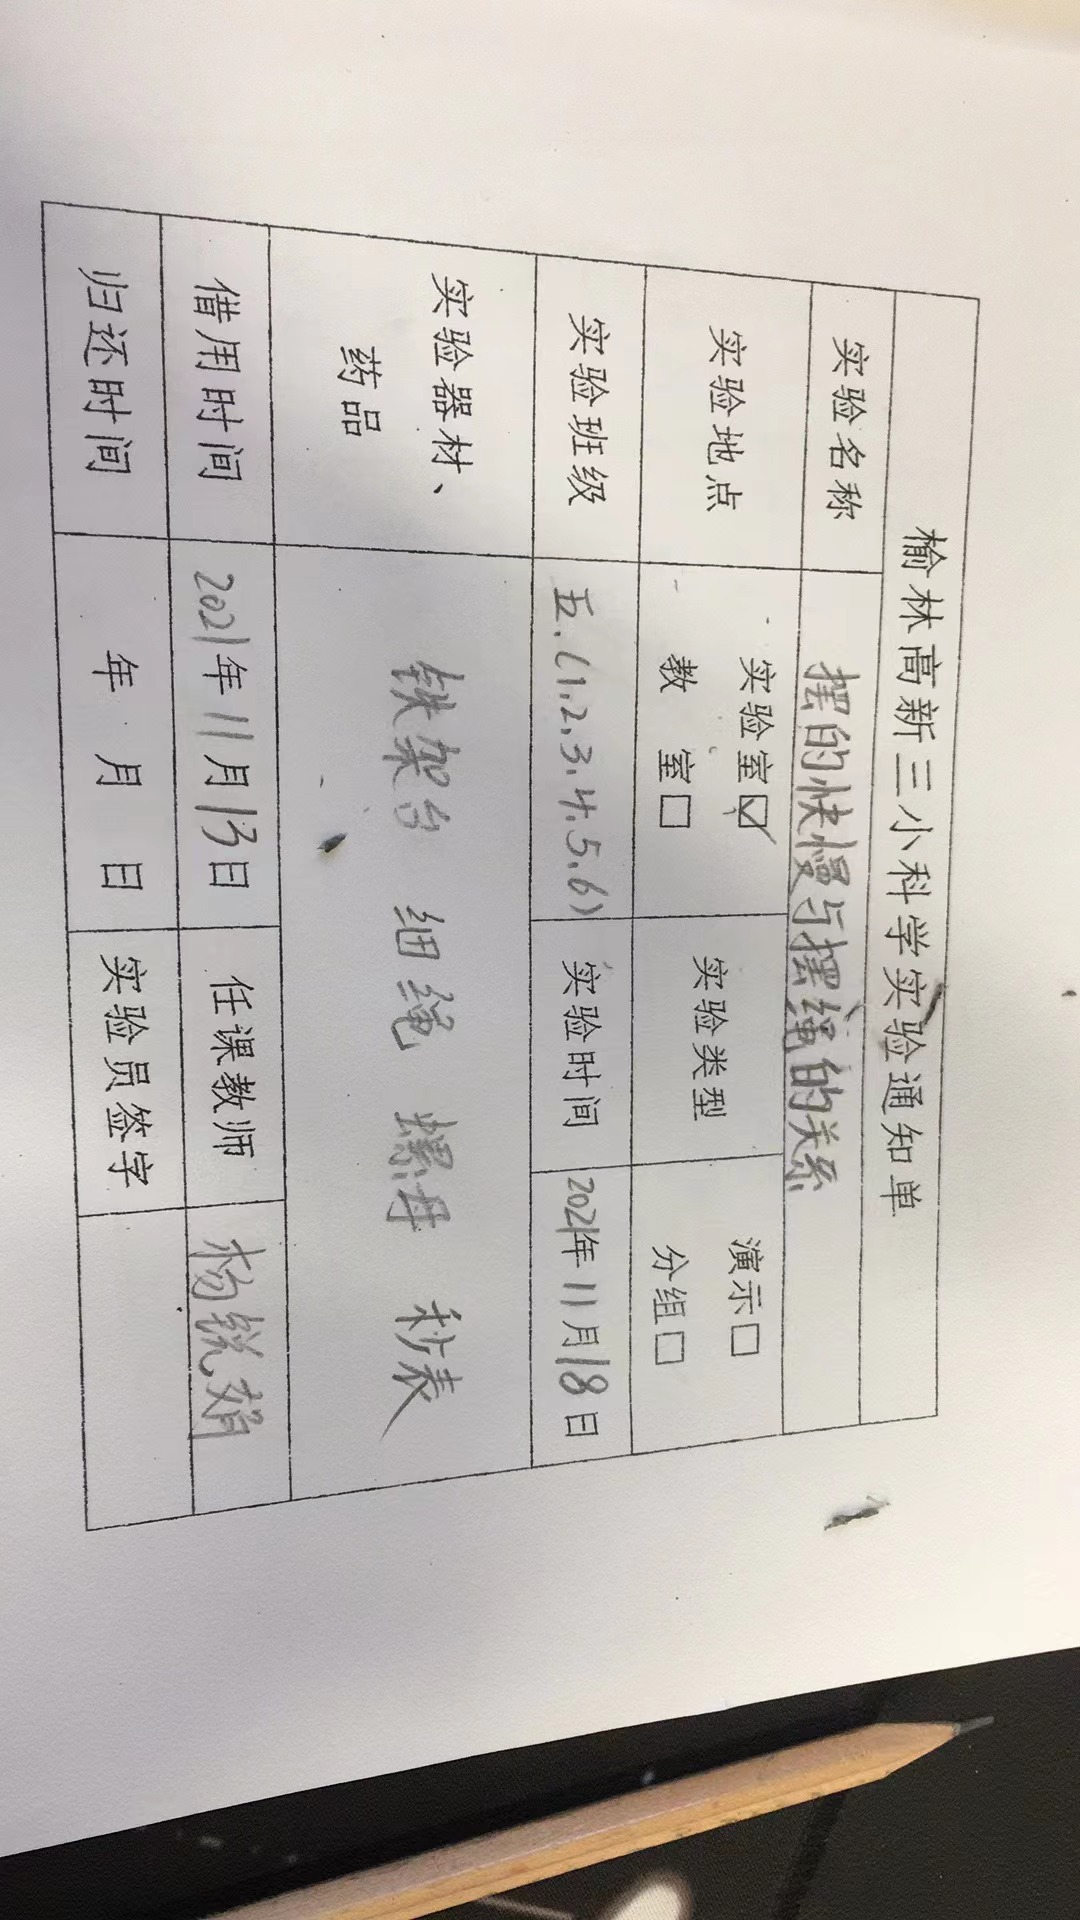 榆林高新三小科学实验通知单
实验名称 摆的快慢与摆绳的关系
实验地点 实验室☑ 教 室□ 实验类型 演示□ 分组□
实验班级 五.(1.2.3.4.5.6) 实验时间 2021年11月18日
实验器材、药品 铁架台 细绳 螺母 秒表
借用时间 2021年11月13日 任课教师 杨锐娟
归还时间 年 月 日 实验员签字